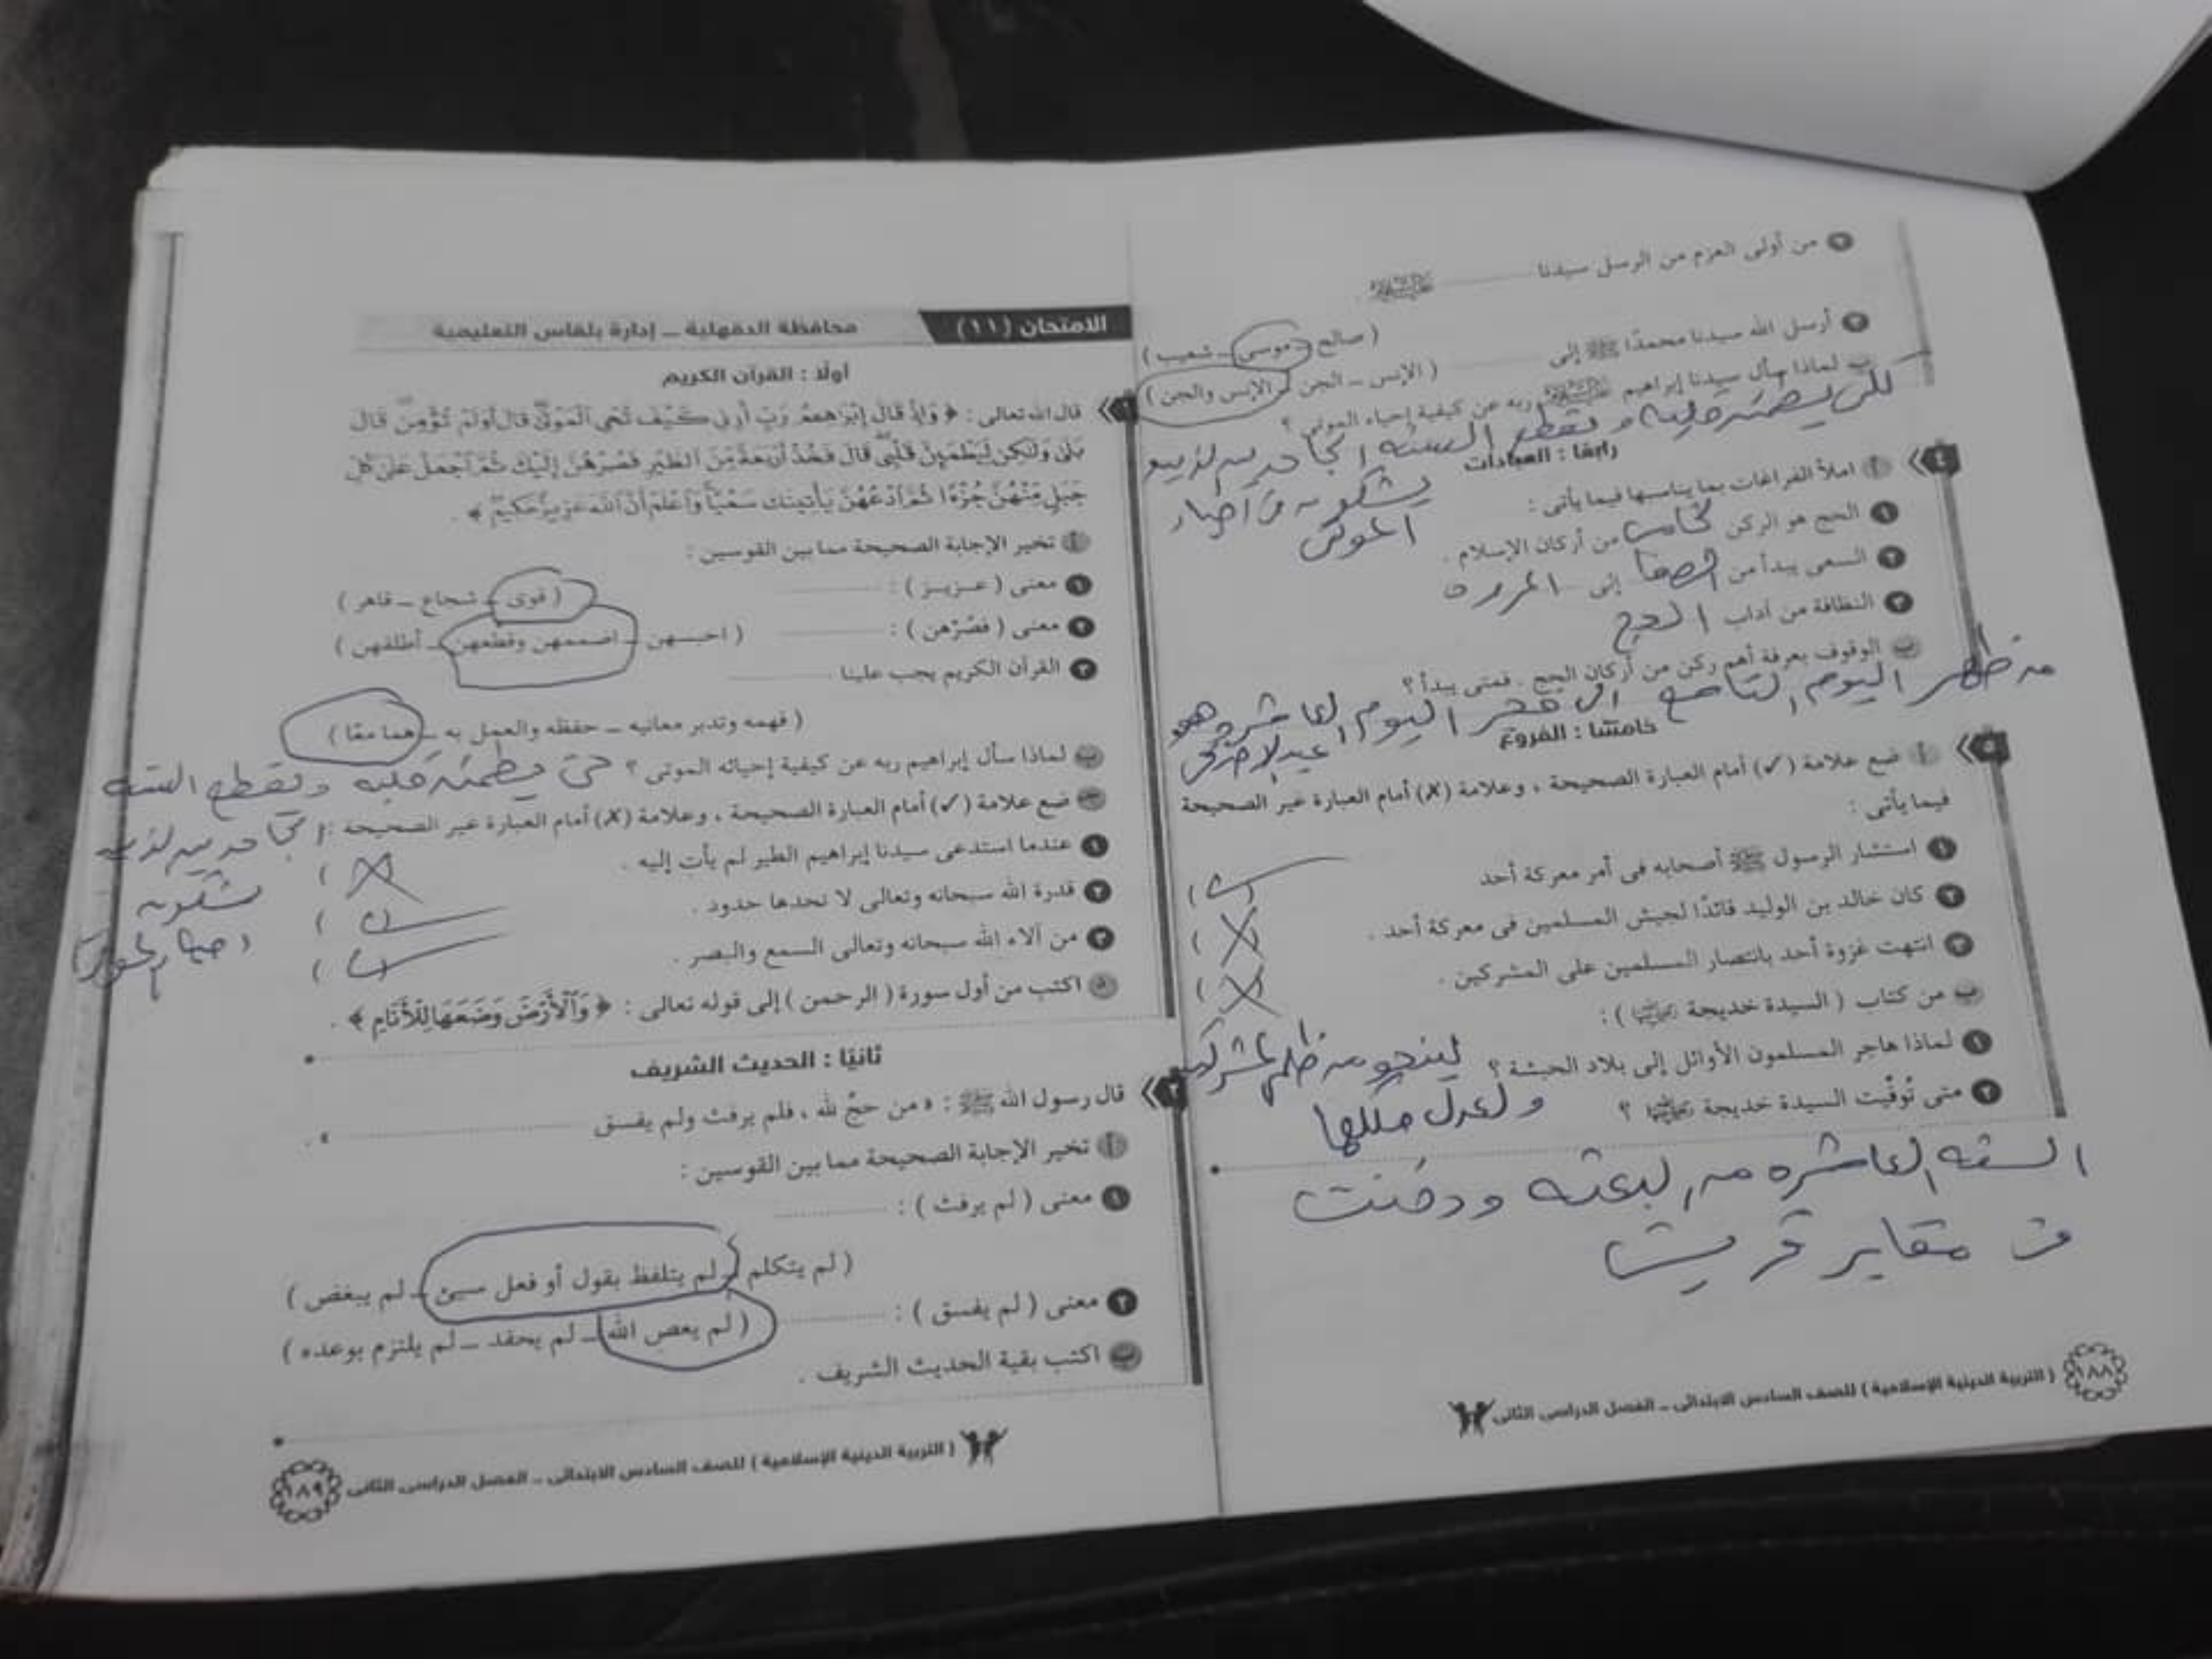 ٢ من أولى العزم من الرسل سيدنا
( صالح – موسى – شعيب )
٣ أرسل الله سيدنا محمدًا ﷺ إلى
( الإنس – الجن – الإنس والجن )
ب لماذا سأل سيدنا إبراهيم ربه عن كيفية إحياء الموتى ؟
لكى يطمئن قلبه و تقطع السنه الجاحدين لذين
يشكون فى احياء
الموتى
رابعًا : العبادات
٤ أ املأ الفراغات بما يناسبها فيما يأتى :
١ الحج هو الركن الخامس من أركان الإسلام .
٢ السعى يبدأ من الصفا إلى المروه
٣ النظافة من آداب الحج
ب الوقوف بعرفة أهم ركن من أركان الحج . فمتى يبدأ ؟
من ظهر اليوم التاسع الى فجر اليوم العاشر وهو
عيد الاضحى
خامسًا : الفروع
٥ أ ضع علامة (✓) أمام العبارة الصحيحة ، وعلامة (✗) أمام العبارة غير الصحيحة
فيما يأتى :
١ استشار الرسول ﷺ أصحابه فى أمر معركة أحد ( ✓
٢ كان خالد بن الوليد قائدًا لجيش المسلمين فى معركة أحد . ( ✗
٣ انتهت غزوة أحد بانتصار المسلمين على المشركين . ( ✗
ب من كتاب ( السيدة خديجة ) :
١ لماذا هاجر المسلمون الأوائل إلى بلاد الحبشة ؟ لينجو من ظلم المشركين
ولعدل ملكها
٢ متى تُوفِّيت السيدة خديجة ؟
السنه العاشره من البعثه ودفنت
فى مقابر قريش
١٨٨ ( التربية الدينية الإسلامية ) للصف السادس الابتدائى – الفصل الدراسى الثانى
الامتحان (١١) محافظة الدقهلية – إدارة بلقاس التعليمية
أولًا : القرآن الكريم
١ قال الله تعالى : ﴿ وَإِذْ قَالَ إِبْرَاهِيمُ رَبِّ أَرِنِي كَيْفَ تُحْيِ الْمَوْتَىٰ قَالَ أَوَلَمْ تُؤْمِن قَالَ
بَلَىٰ وَلَٰكِن لِّيَطْمَئِنَّ قَلْبِي قَالَ فَخُذْ أَرْبَعَةً مِّنَ الطَّيْرِ فَصُرْهُنَّ إِلَيْكَ ثُمَّ اجْعَلْ عَلَىٰ كُلِّ
جَبَلٍ مِّنْهُنَّ جُزْءًا ثُمَّ ادْعُهُنَّ يَأْتِينَكَ سَعْيًا وَاعْلَمْ أَنَّ اللَّهَ عَزِيزٌ حَكِيمٌ ﴾ .
أ تخير الإجابة الصحيحة مما بين القوسين :
١ معنى ( عزيز ) : ( قوى – شجاع – قاهر )
٢ معنى ( فصُرْهن ) : ( احبسهن – اضممهن وقطعهن – أطلقهن )
٣ القرآن الكريم يجب علينا
( فهمه وتدبر معانيه – حفظه والعمل به – هما معًا )
ب لماذا سأل إبراهيم ربه عن كيفية إحيائه الموتى ؟ حتى يطمئن قلبه وتقطع السنه
الجاحدين لذين
يشكون
احياء الموتى
جـ ضع علامة (✓) أمام العبارة الصحيحة ، وعلامة (✗) أمام العبارة غير الصحيحة :
١ عندما استدعى سيدنا إبراهيم الطير لم يأت إليه . ✗ (
٢ قدرة الله سبحانه وتعالى لا تحدها حدود . ✓ (
٣ من آلاء الله سبحانه وتعالى السمع والبصر . ✓ (
د اكتب من أول سورة ( الرحمن ) إلى قوله تعالى : ﴿ وَالْأَرْضَ وَضَعَهَا لِلْأَنَامِ ﴾ .
ثانيًا : الحديث الشريف
٢ قال رسول الله ﷺ : « من حجَّ لله ، فلم يرفث ولم يفسق » .
أ تخير الإجابة الصحيحة مما بين القوسين :
١ معنى ( لم يرفث ) :
( لم يتكلم – لم يتلفظ بقول أو فعل سيئ – لم يبغض )
٢ معنى ( لم يفسق ) :
( لم يعص الله – لم يحقد – لم يلتزم بوعده )
ب اكتب بقية الحديث الشريف .
( التربية الدينية الإسلامية ) للصف السادس الابتدائى – الفصل الدراسى الثانى ١٨٩